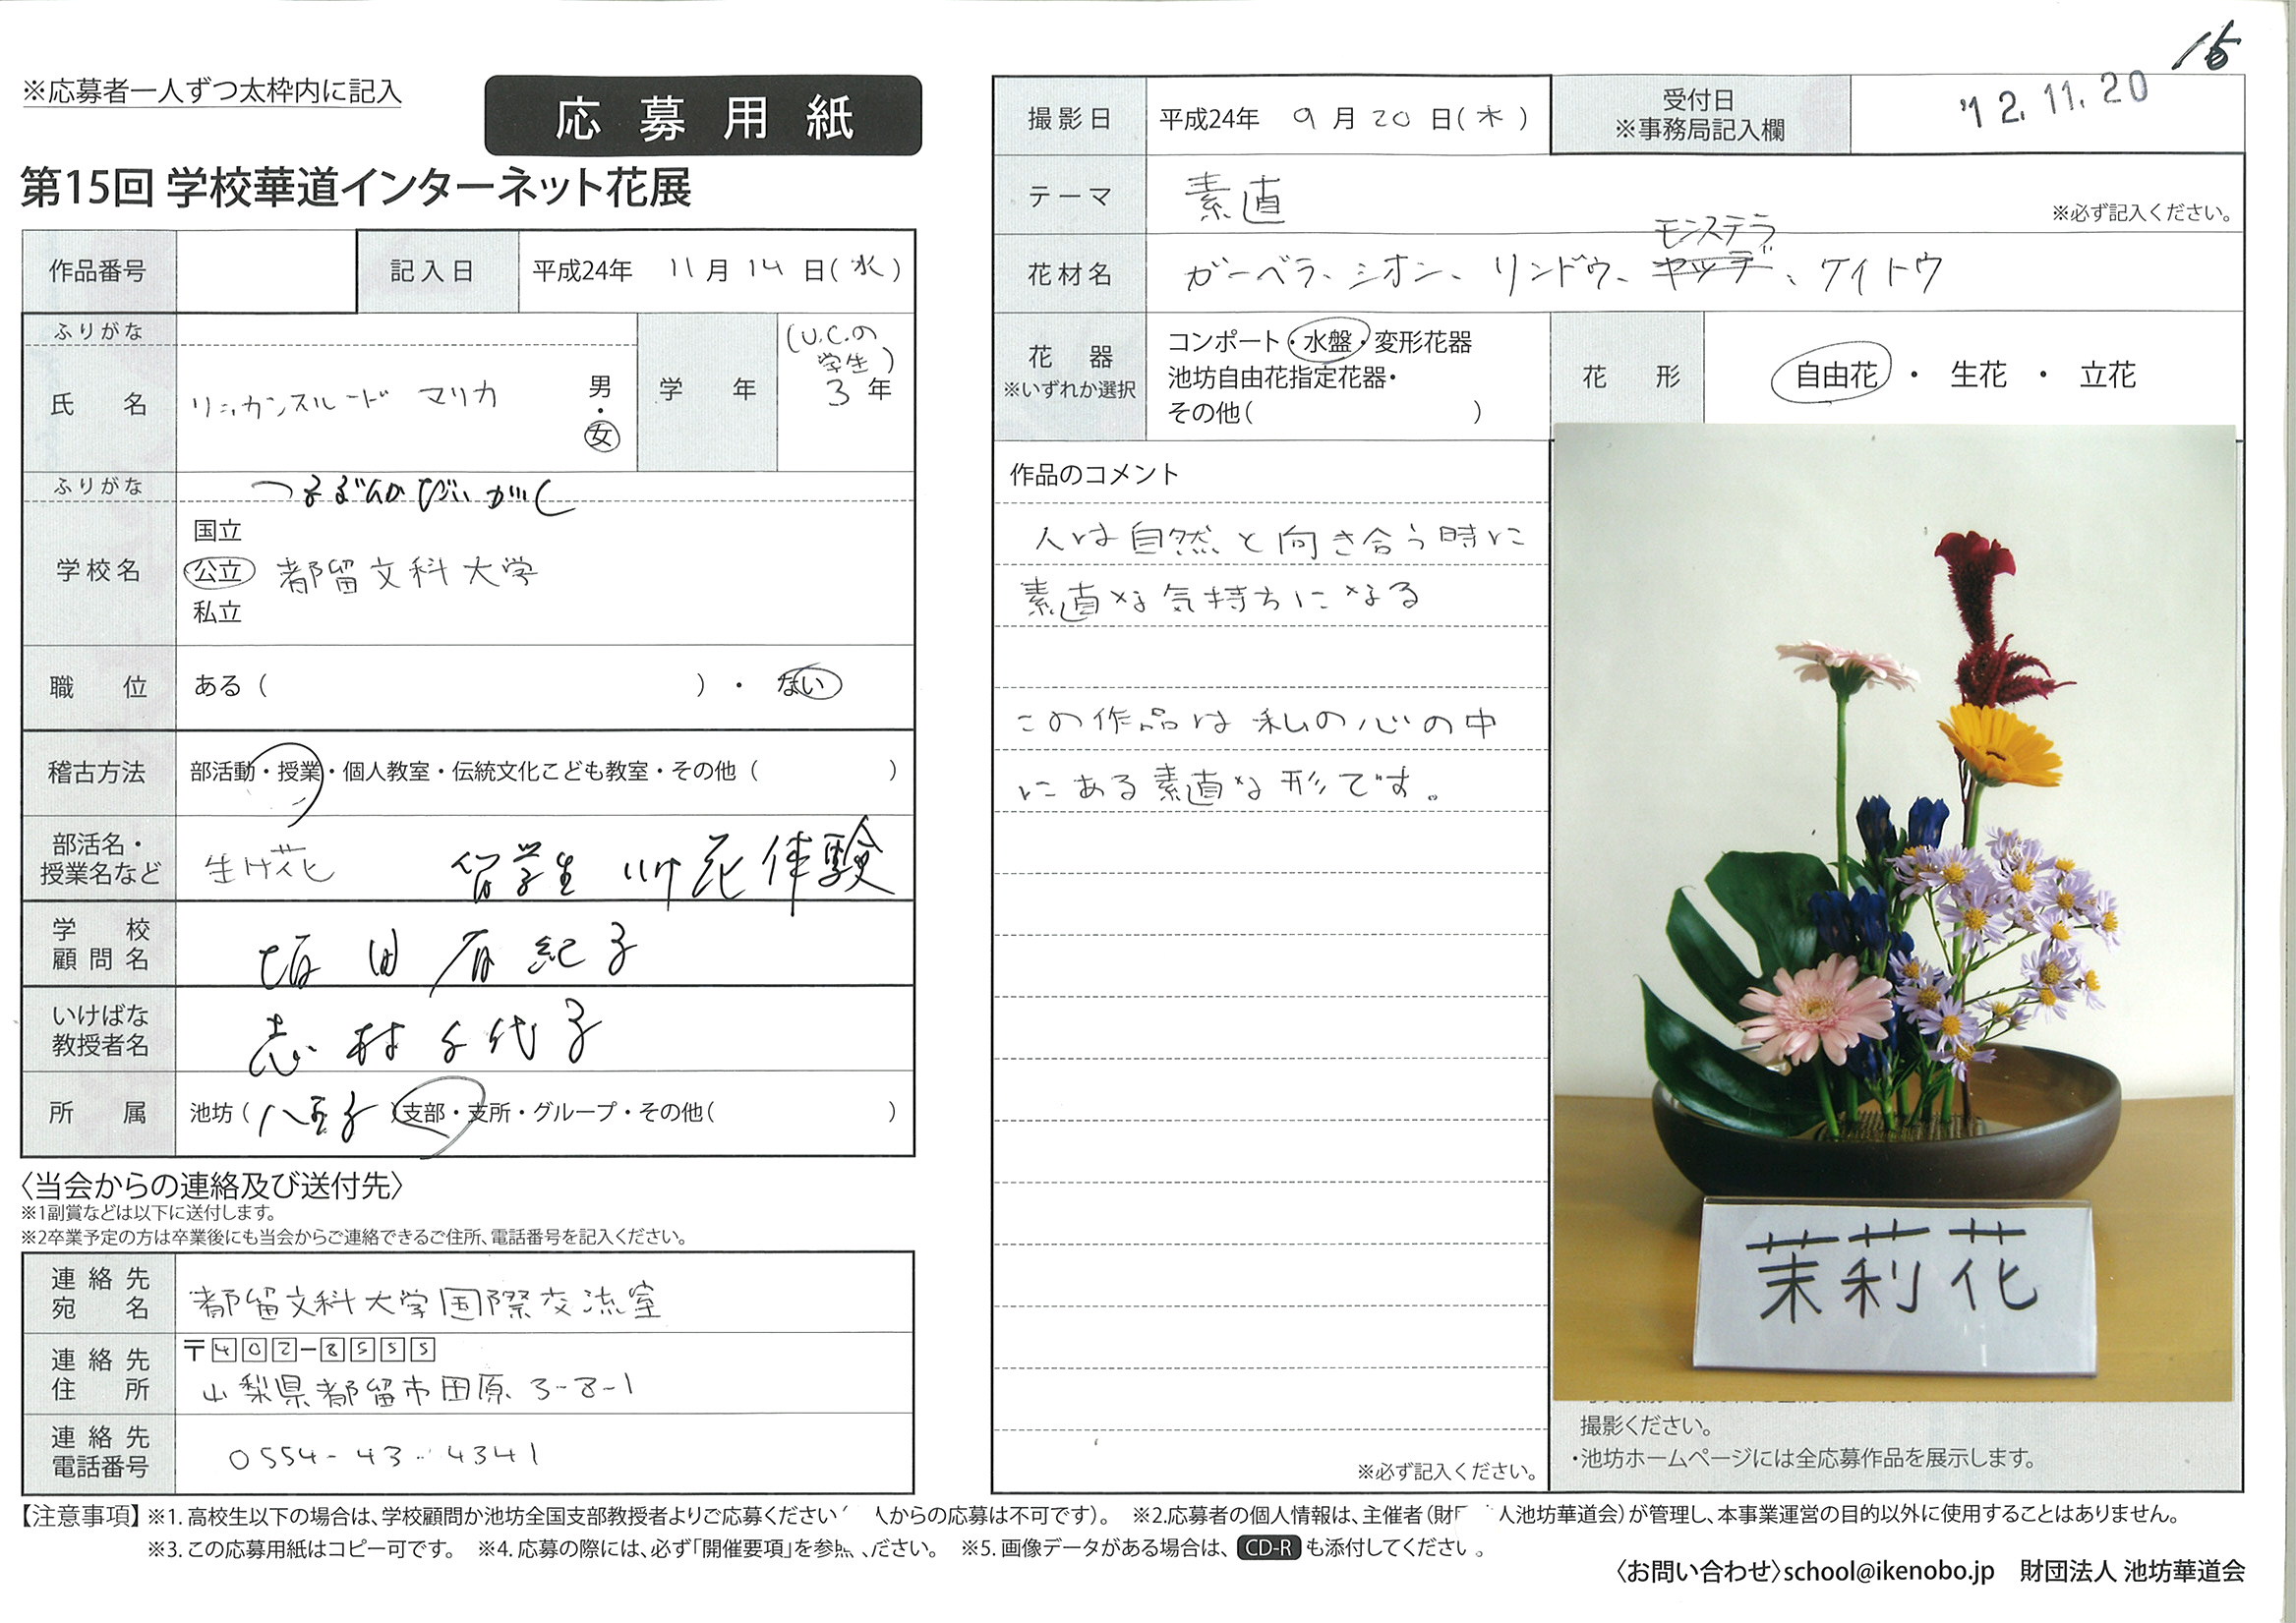 ※応募者一人ずつ太枠内に記入
応募用紙
第15回 学校華道インターネット花展
作品番号
記入日 平成24年 11月14日(水)
ふりがな
氏名 リュカンスルード マリカ 男・女
学年 (U.C.の学生) 3年
ふりがな つるぶんかだいがく
学校名 国立
公立 都留文科大学
私立
職位 ある( )・ない
稽古方法 部活動・授業・個人教室・伝統文化こども教室・その他( )
部活名・授業名など 生け花 留学生 いけ花体験
学校顧問名 坂田有紀子
いけばな教授者名 志村千代子
所属 池坊(八王子)支部・支所・グループ・その他( )
〈当会からの連絡及び送付先〉
※1副賞などは以下に送付します。
※2卒業予定の方は卒業後にも当会からご連絡できるご住所、電話番号を記入ください。
連絡先宛名 都留文科大学国際交流室
連絡先住所 〒402-8555
山梨県都留市田原3-8-1
連絡先電話番号 0554-43-4341
15
撮影日 平成24年 9月20日(木)
受付日
※事務局記入欄
'12.11.20
テーマ 素直
※必ず記入ください。
モンステラ
花材名 ガーベラ、シオン、リンドウ、ヤツデ、ケイトウ
花器
※いずれか選択
コンポート・水盤・変形花器
池坊自由花指定花器・
その他( )
花形 自由花・生花・立花
作品のコメント
人は自然と向き合う時に
素直な気持ちになる
この作品は私の心の中
にある素直な形です。
※必ず記入ください。
茉莉花
撮影ください。
・池坊ホームページには全応募作品を展示します。
【注意事項】※1.高校生以下の場合は、学校顧問か池坊全国支部教授者よりご応募ください 人からの応募は不可です)。 ※2.応募者の個人情報は、主催者(財 人池坊華道会)が管理し、本事業運営の目的以外に使用することはありません。
※3.この応募用紙はコピー可です。 ※4.応募の際には、必ず「開催要項」を参 ださい。 ※5.画像データがある場合は、CD-Rも添付してください。
〈お問い合わせ〉school@ikenobo.jp 財団法人 池坊華道会